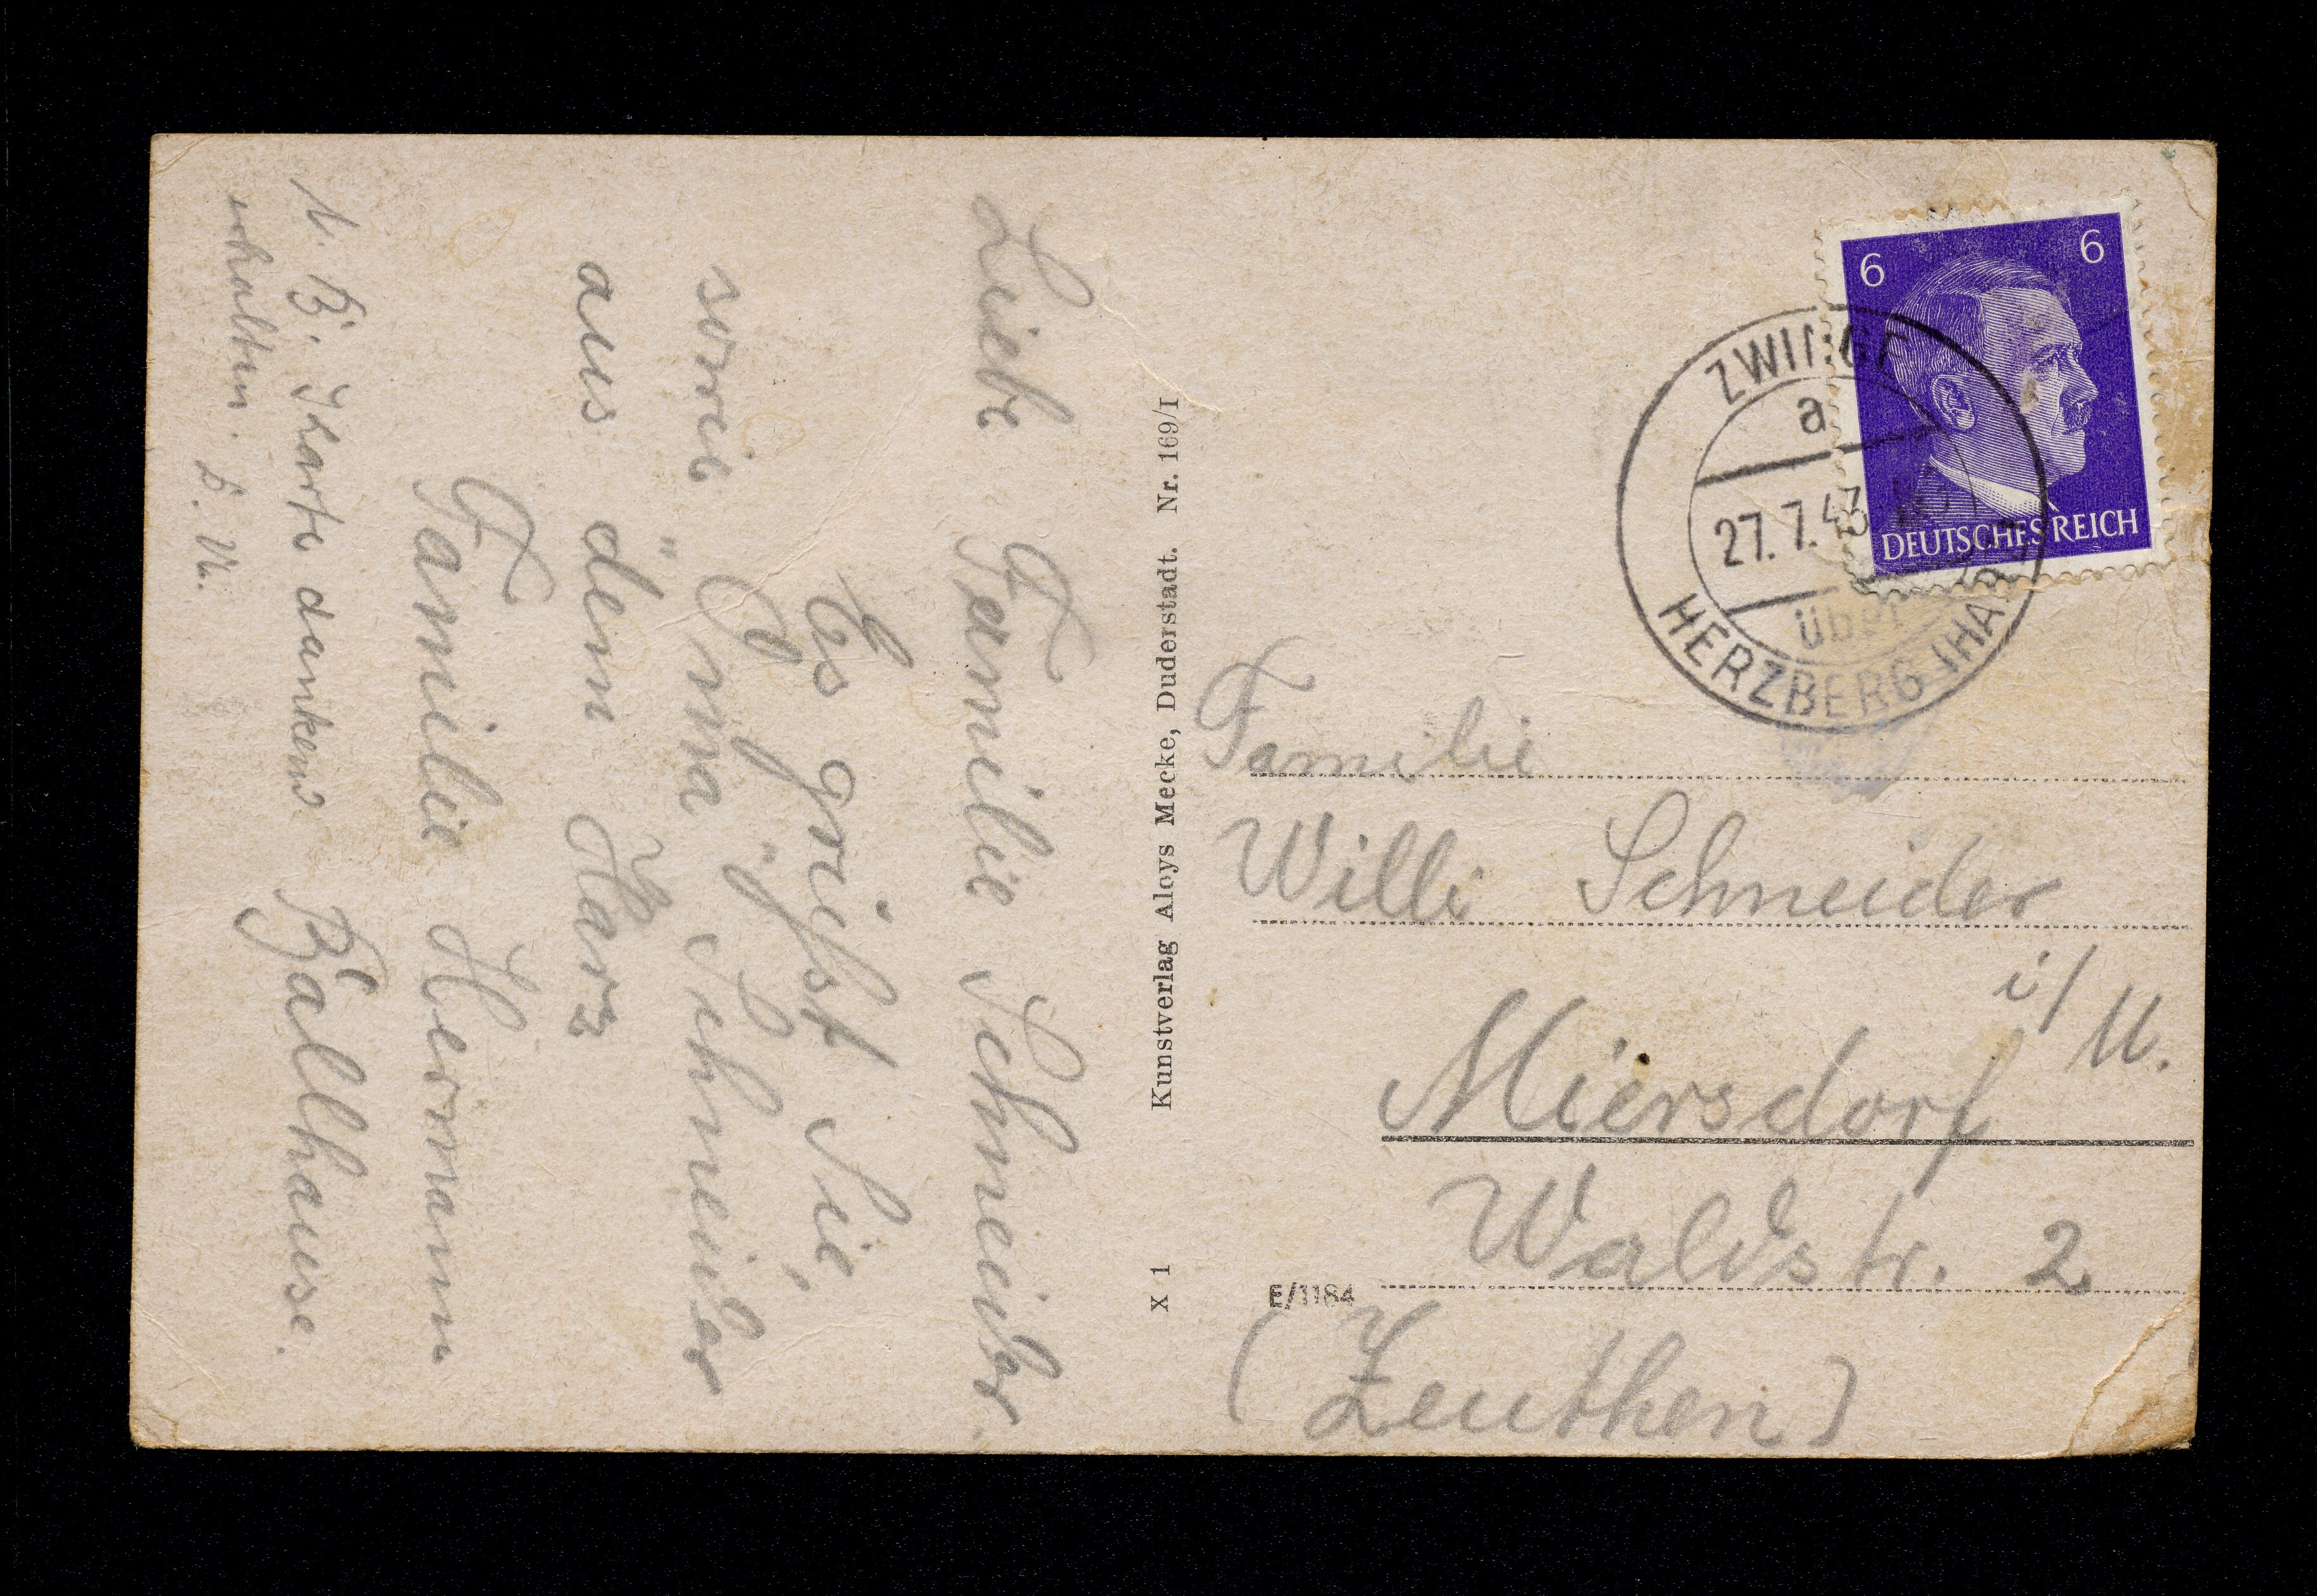 Liebe Familie Schneider.
Es grüßt Sie,
sowie "Oma" Schneider
aus dem Harz
Familie Hermann
Bällhause.
N. B. Karte dankend
erhalten. D. U.
Kunstverlag Aloys Mecke, Duderstadt. Nr. 169/I
X 1
6 6
DEUTSCHES REICH
ZWINGE
a
27. 7. 43
über
HERZBERG (HARZ)
Familie
Willi Schneider
i/M.
Miersdorf
Waldstr. 2
E/1184
(Zeuthen)